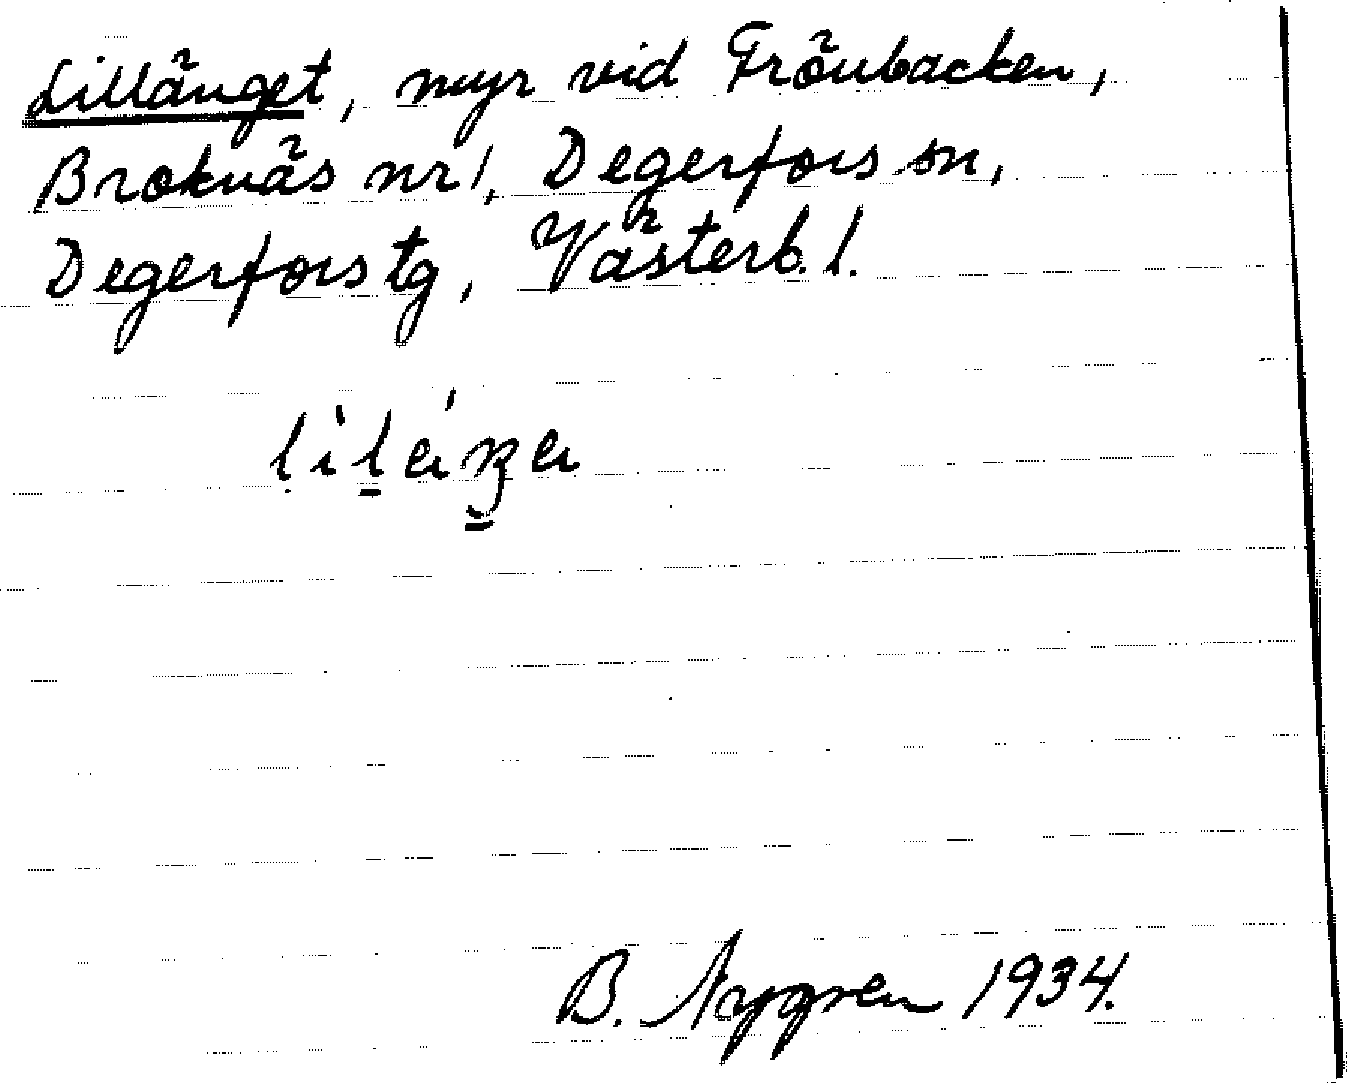 Lillänget, myr vid Fröubacken,
Broknäs nr 1, Degerfors sn,
Degerfors tg, Västerb. l.
B. Nygren 1934.